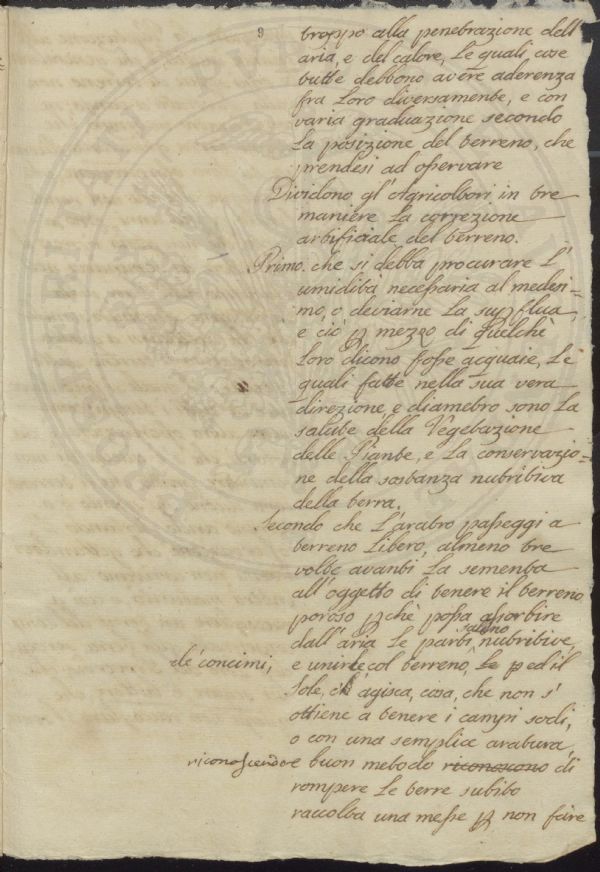 9
troppo alla penetrazione dell'
aria, e del calore, Le quali cose
tutte debbono avere aderenza
fra Loro diversamente, e con
varia graduazione secondo
La posizione del terreno, che
prendesi ad osservare
Dividono gl'Agricoltori in tre
maniere La correzione
artificiale del terreno.
Primo. che si debba procurare L'
umidità necessaria al medesi=
mo, o deviarne La supflua,
e ciò p mezzo di Quelchè
Loro dicono fosse acquaie, Le
quali fatte nella sua vera
direzione, e diametro sono La
salute della Vegetazione
delle Piante, e La conservazio=
ne della sostanza nutritiva
della terra.
Secondo che L'aratro passeggi a
terreno Libero, almeno tre
volte avanti La sementa
all'oggetto di tenere il terreno
poroso pchè possa assorbire
dall'aria Le parti nutritive,
de' concimi, e unirle col terreno, Le ed il
Sole, ch'agisca, cosa, che non s'
ottiene a tenere i campi sodi,
o con una semplice aratura,
riconoscendo e buon metodo riconoscono di
rompere Le terre subito
raccolta una messe p non fare